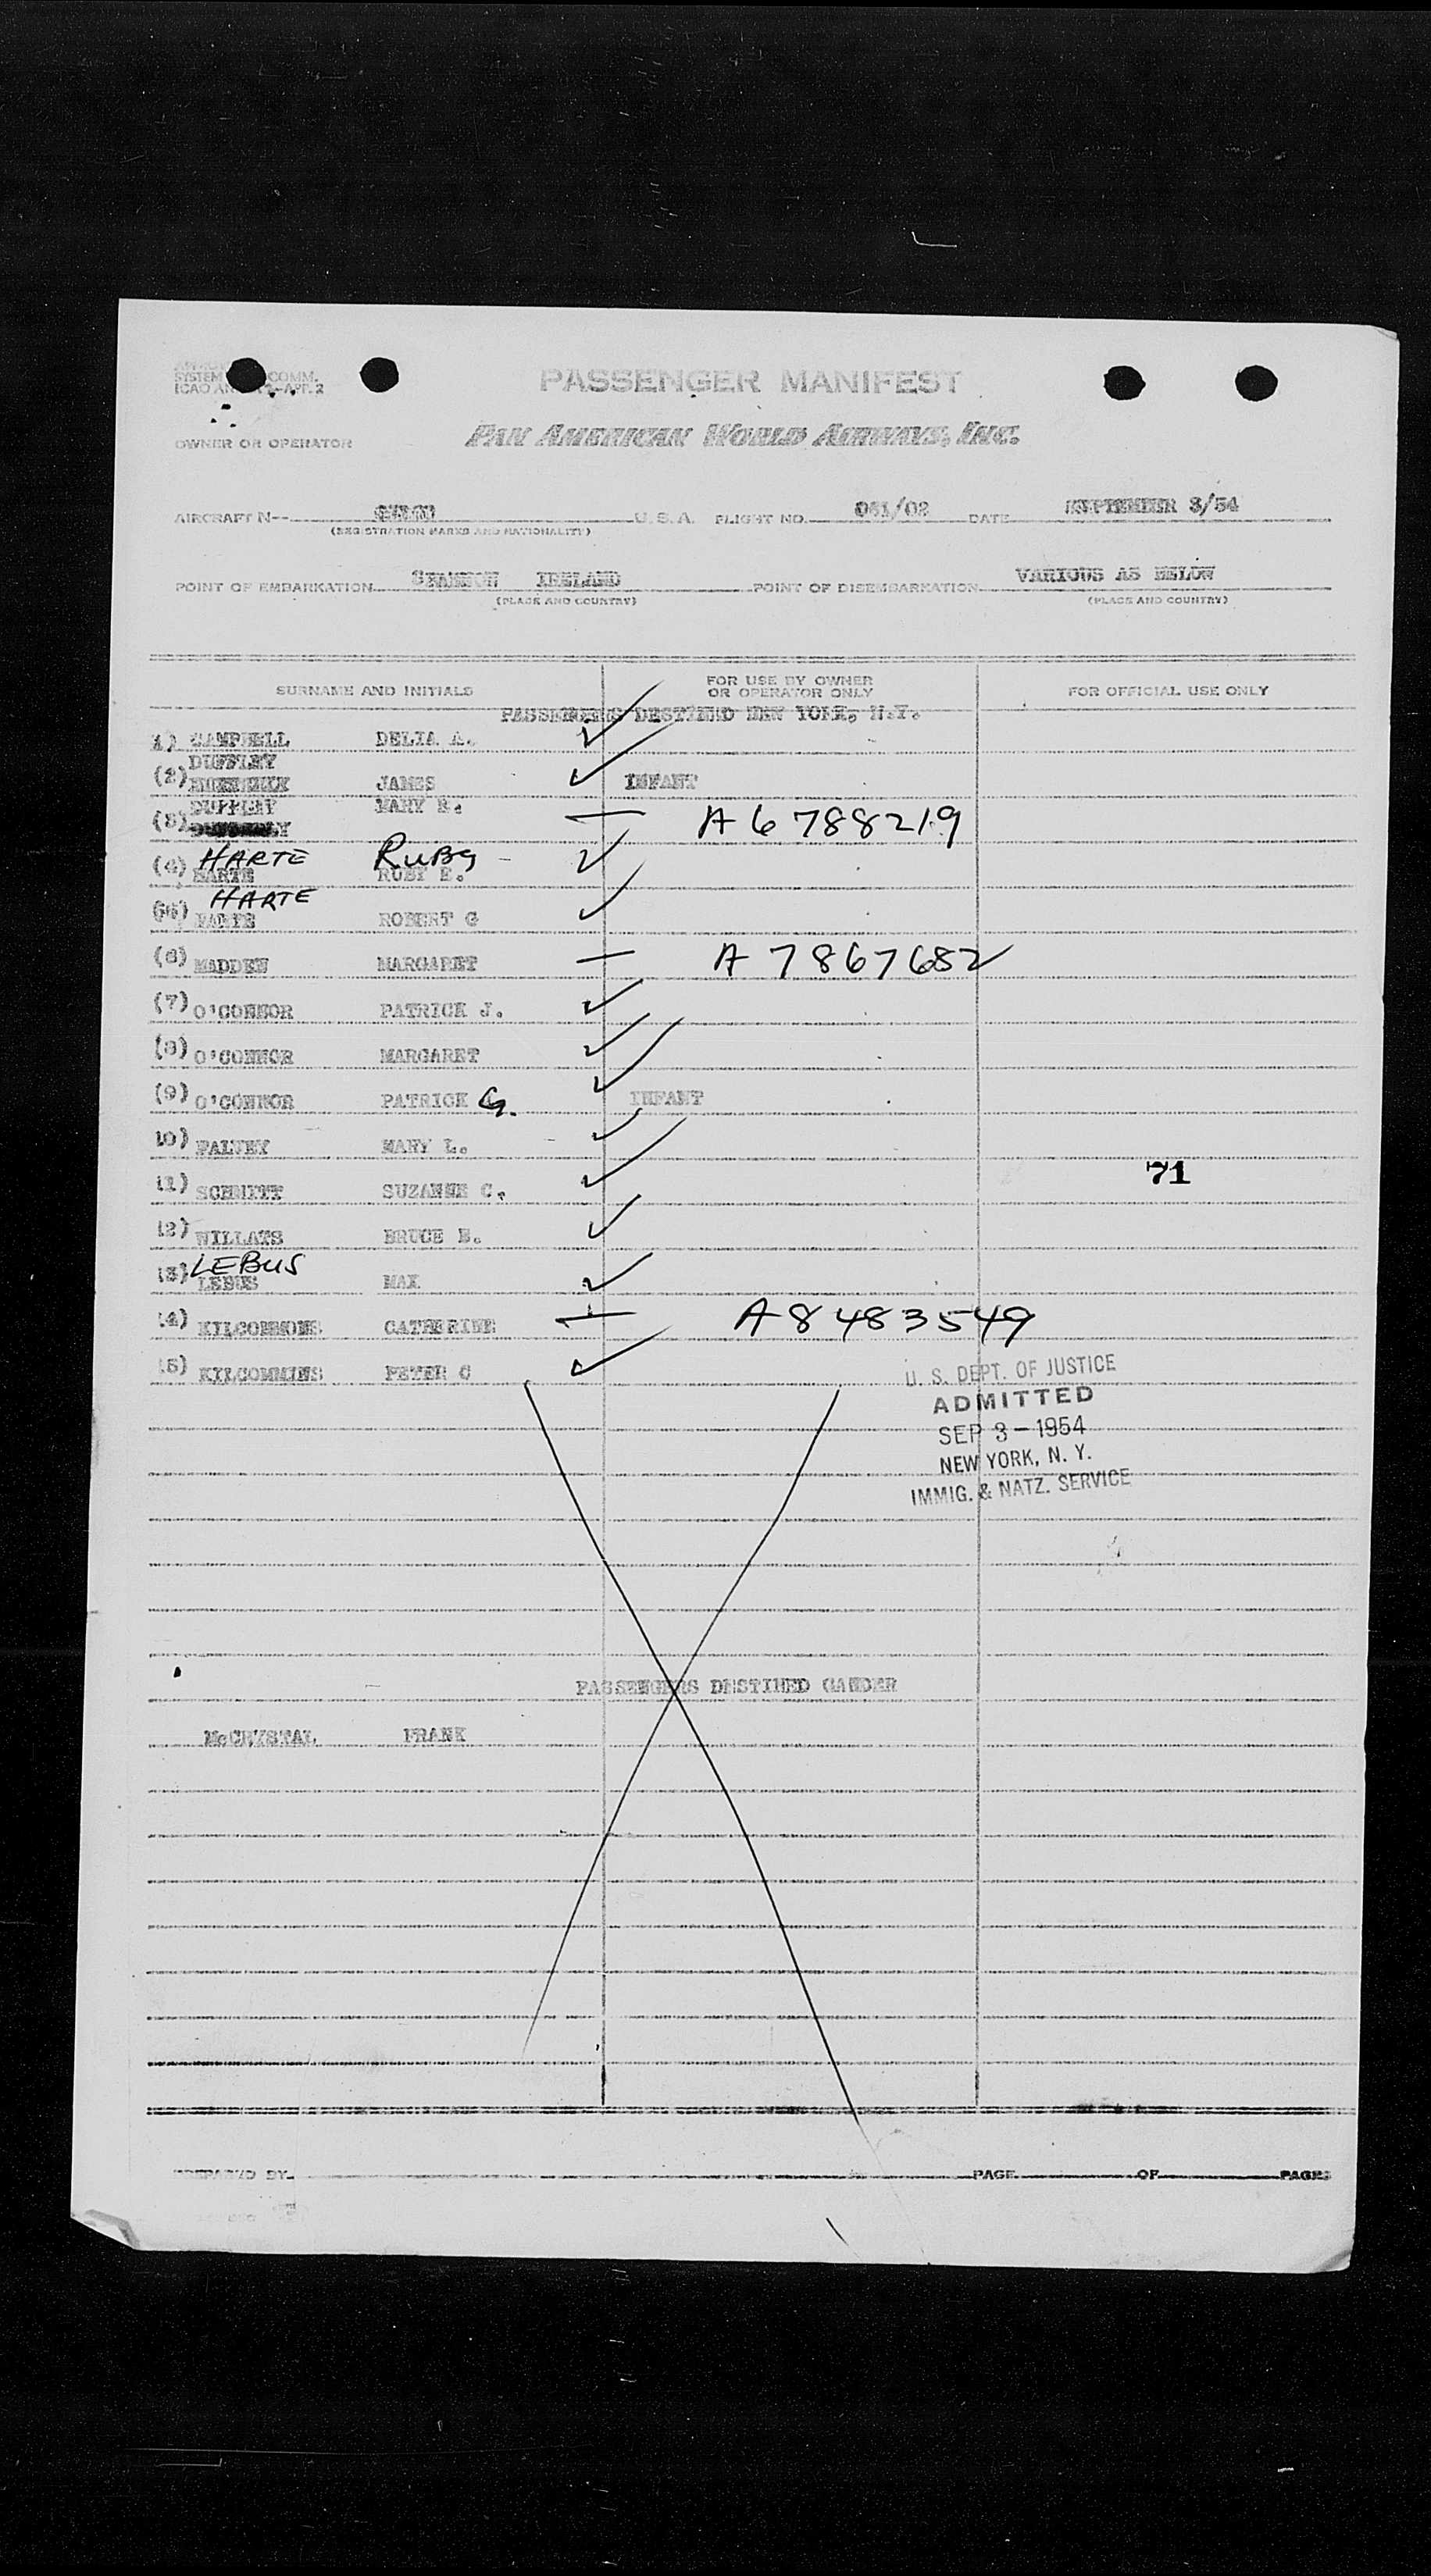 SYSTEM COMM.
ICAO AN -APP. 2
PASSENGER MANIFEST
OWNER OR OPERATOR PAN AMERICAN WORLD AIRWAYS, INC.
AIRCRAFT N-- U. S. A. FLIGHT NO. 061/02 DATE SEPTEMBER 3/54
(REGISTRATION MARKS AND NATIONALITY)
POINT OF EMBARKATION SHANNON IRELAND POINT OF DISEMBARKATION VARIOUS AS BELOW
(PLACE AND COUNTRY) (PLACE AND COUNTRY)
SURNAME AND INITIALS FOR USE BY OWNER OR OPERATOR ONLY FOR OFFICIAL USE ONLY
PASSENGERS DESTINED NEW YORK, N.Y.
1) CAMPBELL DELIA A. ✓
DUFFLEY
(2) JAMES ✓ INFANT
DUFFLEY MARY E.
(3) — A6788219
HARTE RUBY
(4) HARTE RUBY E. ✓
HARTE
(5) HARTE ROBERT G ✓
(6) MADDEN MARGARET — A7867682
(7) O'CONNOR PATRICK J. ✓
(8) O'CONNOR MARGARET ✓
(9) O'CONNOR PATRICK G. ✓ INFANT
10) PALFEY MARY L. ✓
11) SCHMITT SUZANNE C. ✓
71
12) WILLATS BRUCE E. ✓
LEBUS
13) LEBUS MAX ✓
14) KILCOMMONS CATHERINE — A8483549
15) KILCOMMINS PETER C ✓
U. S. DEPT. OF JUSTICE
ADMITTED
SEP 3 - 1954
NEW YORK, N. Y.
IMMIG. & NATZ. SERVICE
PASSENGERS DESTINED GANDER
McCRYSTAL FRANK
PREPARED BY PAGE OF PAGES